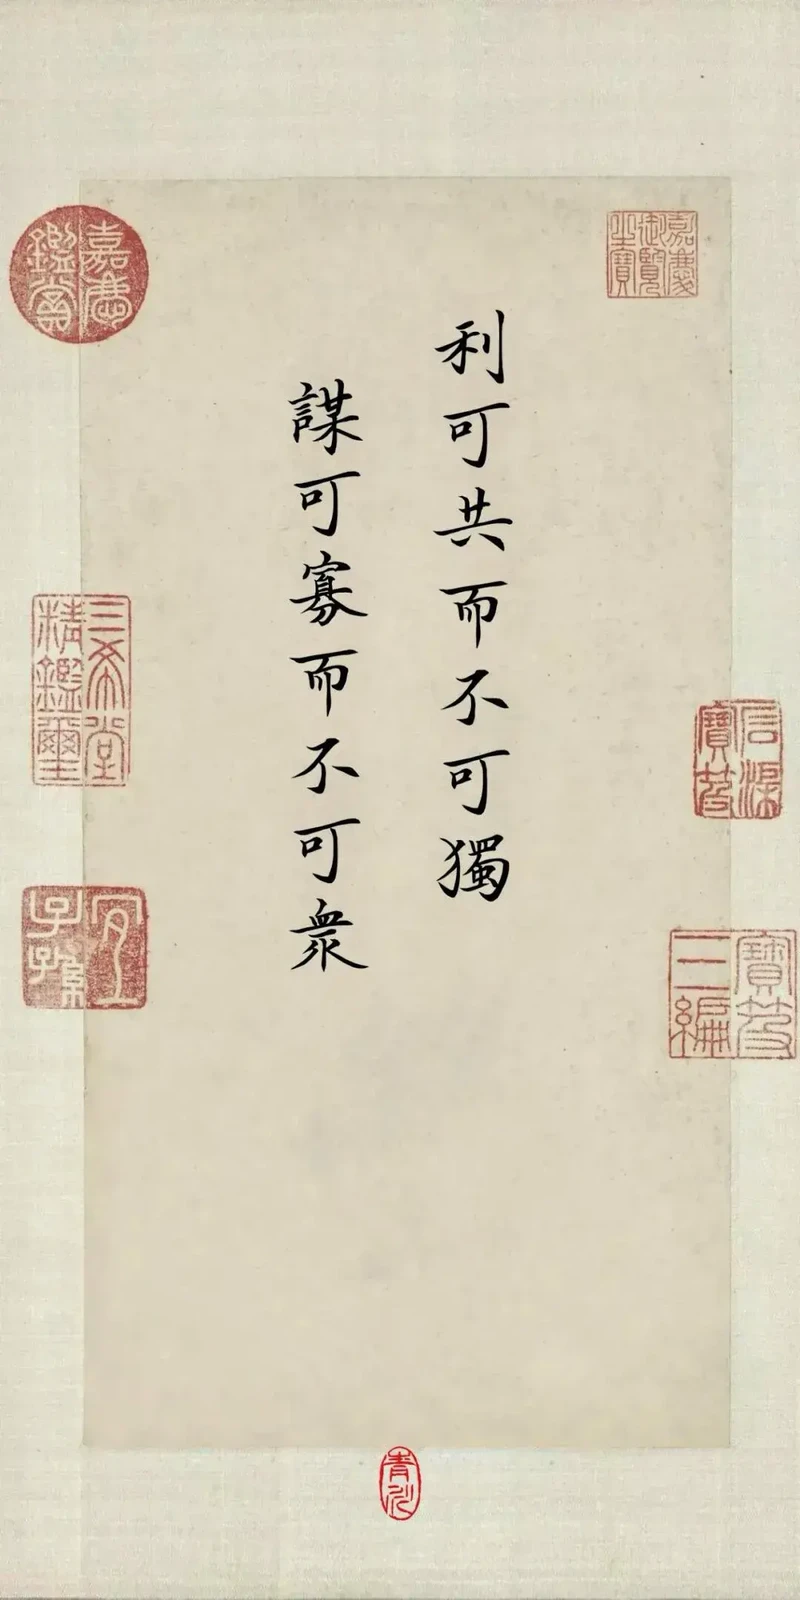 利可共而不可獨
謀可寡而不可衆
嘉慶御覽之寶
嘉慶鑑賞
三希堂精鑑璽
宜子孫
石渠寶笈
寶笈三編